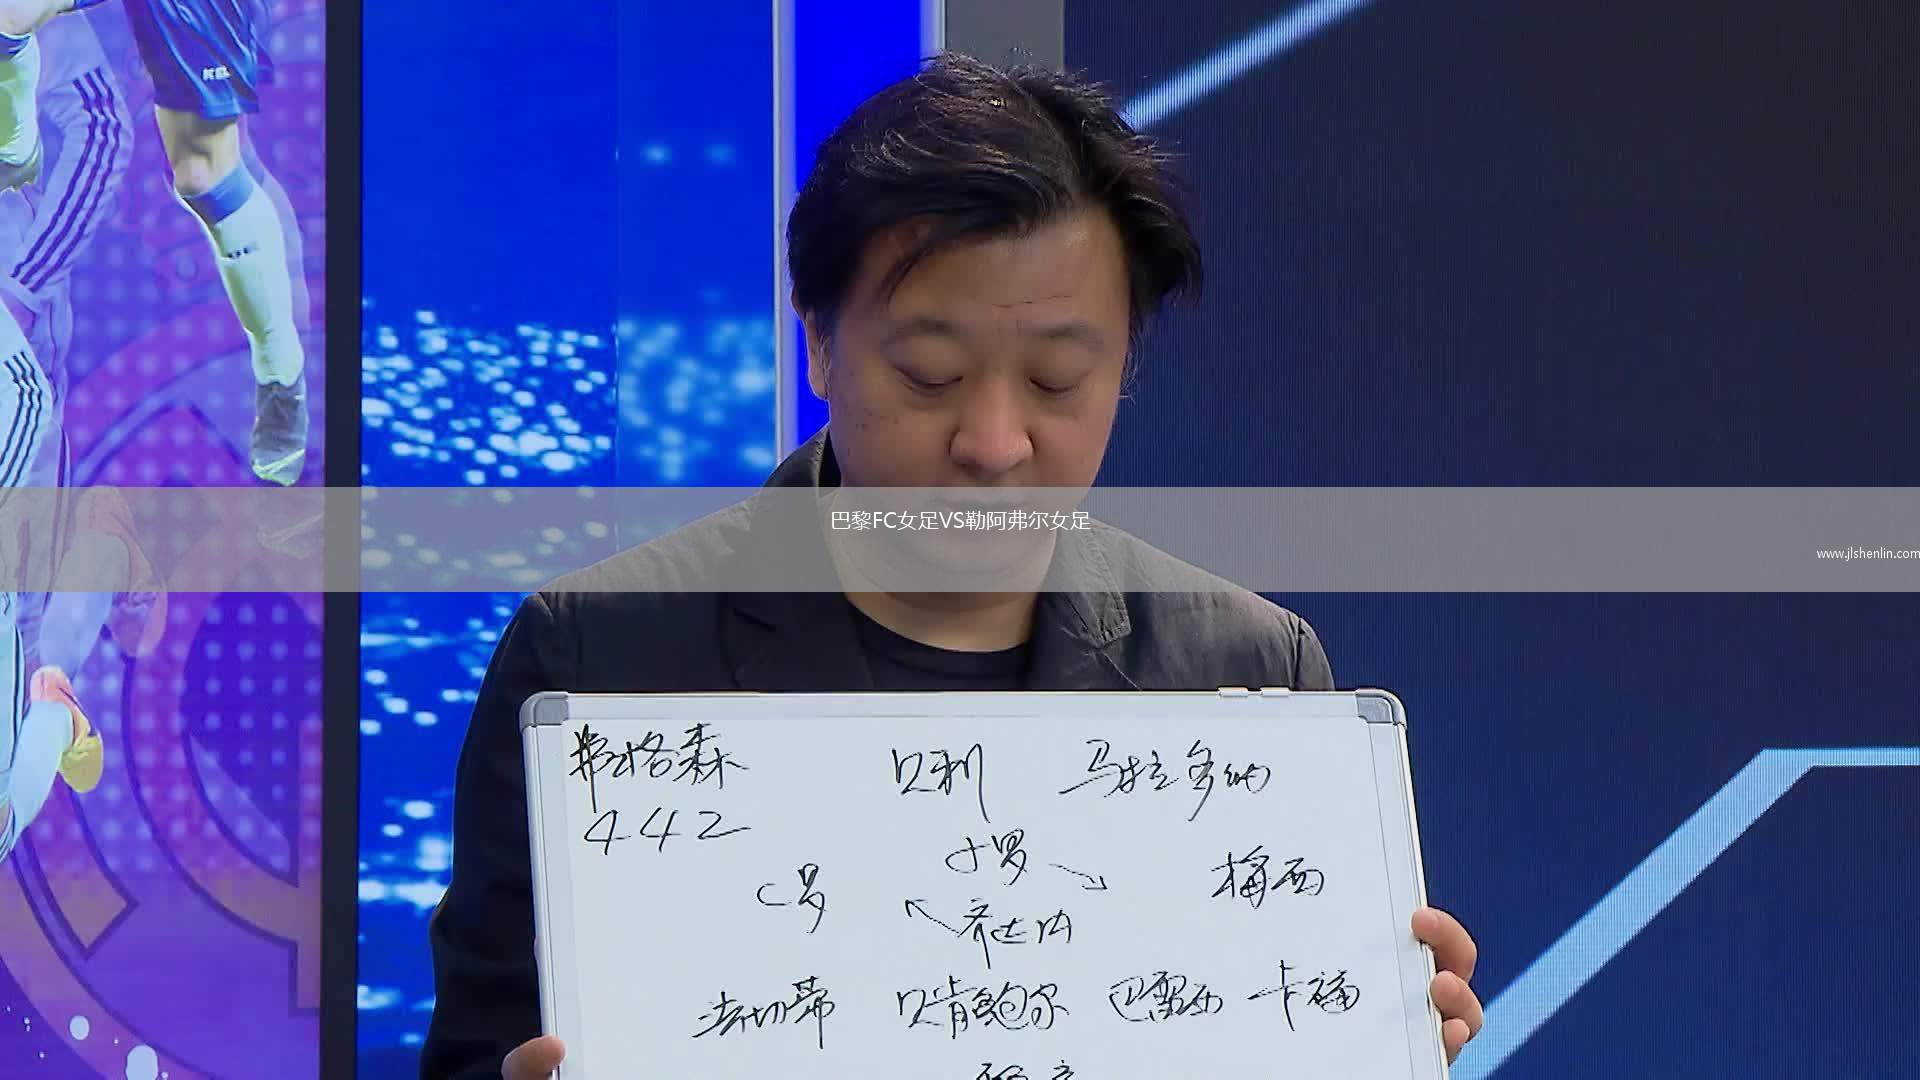 巴黎FC女足VS勒阿弗尔女足
www.jlshenlin.com
弗格森 贝利 马拉多纳
442
小罗
C罗 梅西
齐达内
法切蒂 贝肯鲍尔 巴雷西 卡福